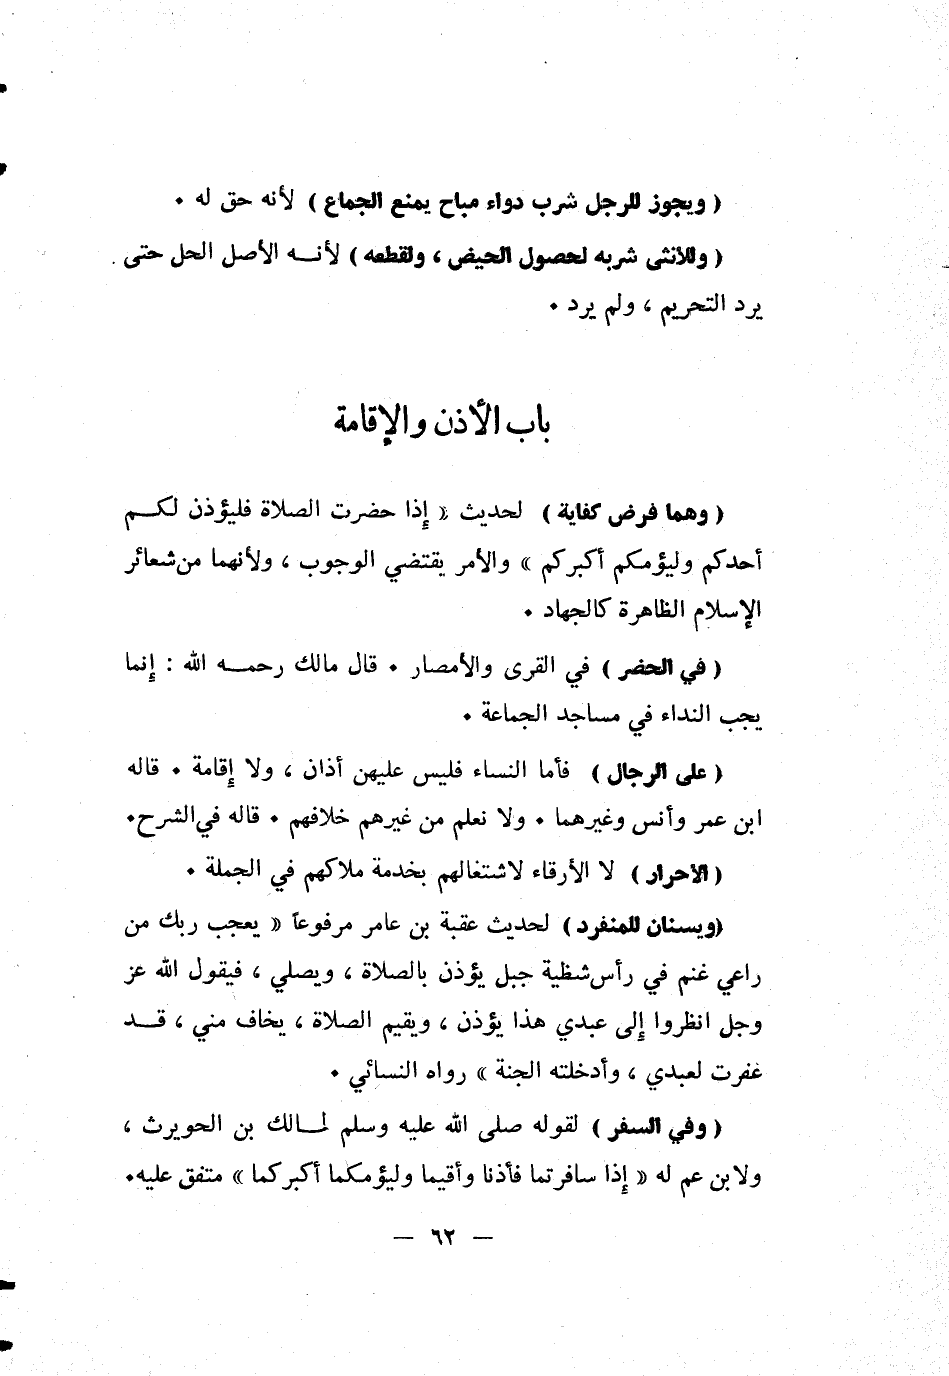 ( ويجوز للرجل شرب دواء مباح يمنع الجماع ) لأنه حق له ٠
( وللأنثى شربه لحصول الحيض ، ولقطعه ) لأنـــه الأصل الحل حتى
يرد التحريم ، ولم يرد ٠
باب الأذن والإقامة
( وهما فرض كفاية ) لحديث « إذا حضرت الصلاة فليؤذن لكـــم
أحدكم وليؤمكم أكبركم » والأمر يقتضي الوجوب ، ولأنهما من شعائر
الإسلام الظاهرة كالجهاد ٠
( في الحضر ) في القرى والأمصار ٠ قال مالك رحمـــه الله : إنما
يجب النداء في مساجد الجماعة ٠
( على الرجال ) فأما النساء فليس عليهن أذان ، ولا إقامة ٠ قاله
ابن عمر وأنس وغيرهما ٠ ولا نعلم من غيرهم خلافهم ٠ قاله في الشرح٠
( الأحرار ) لا الأرقاء لاشتغالهم بخدمة ملاكهم في الجملة ٠
(ويسنان للمنفرد ) لحديث عقبة بن عامر مرفوعاً « يعجب ربك من
راعي غنم في رأس شظية جبل يؤذن بالصلاة ، ويصلي ، فيقول الله عز
وجل انظروا إلى عبدي هذا يؤذن ، ويقيم الصلاة ، يخاف مني ، قـــد
غفرت لعبدي ، وأدخلته الجنة » رواه النسائي ٠
( وفي السفر ) لقوله صلى الله عليه وسلم لمـــالك بن الحويرث ،
ولابن عم له « إذا سافرتما فأذنا وأقيما وليؤمكما أكبركما » متفق عليه٠
— ٦٢ —